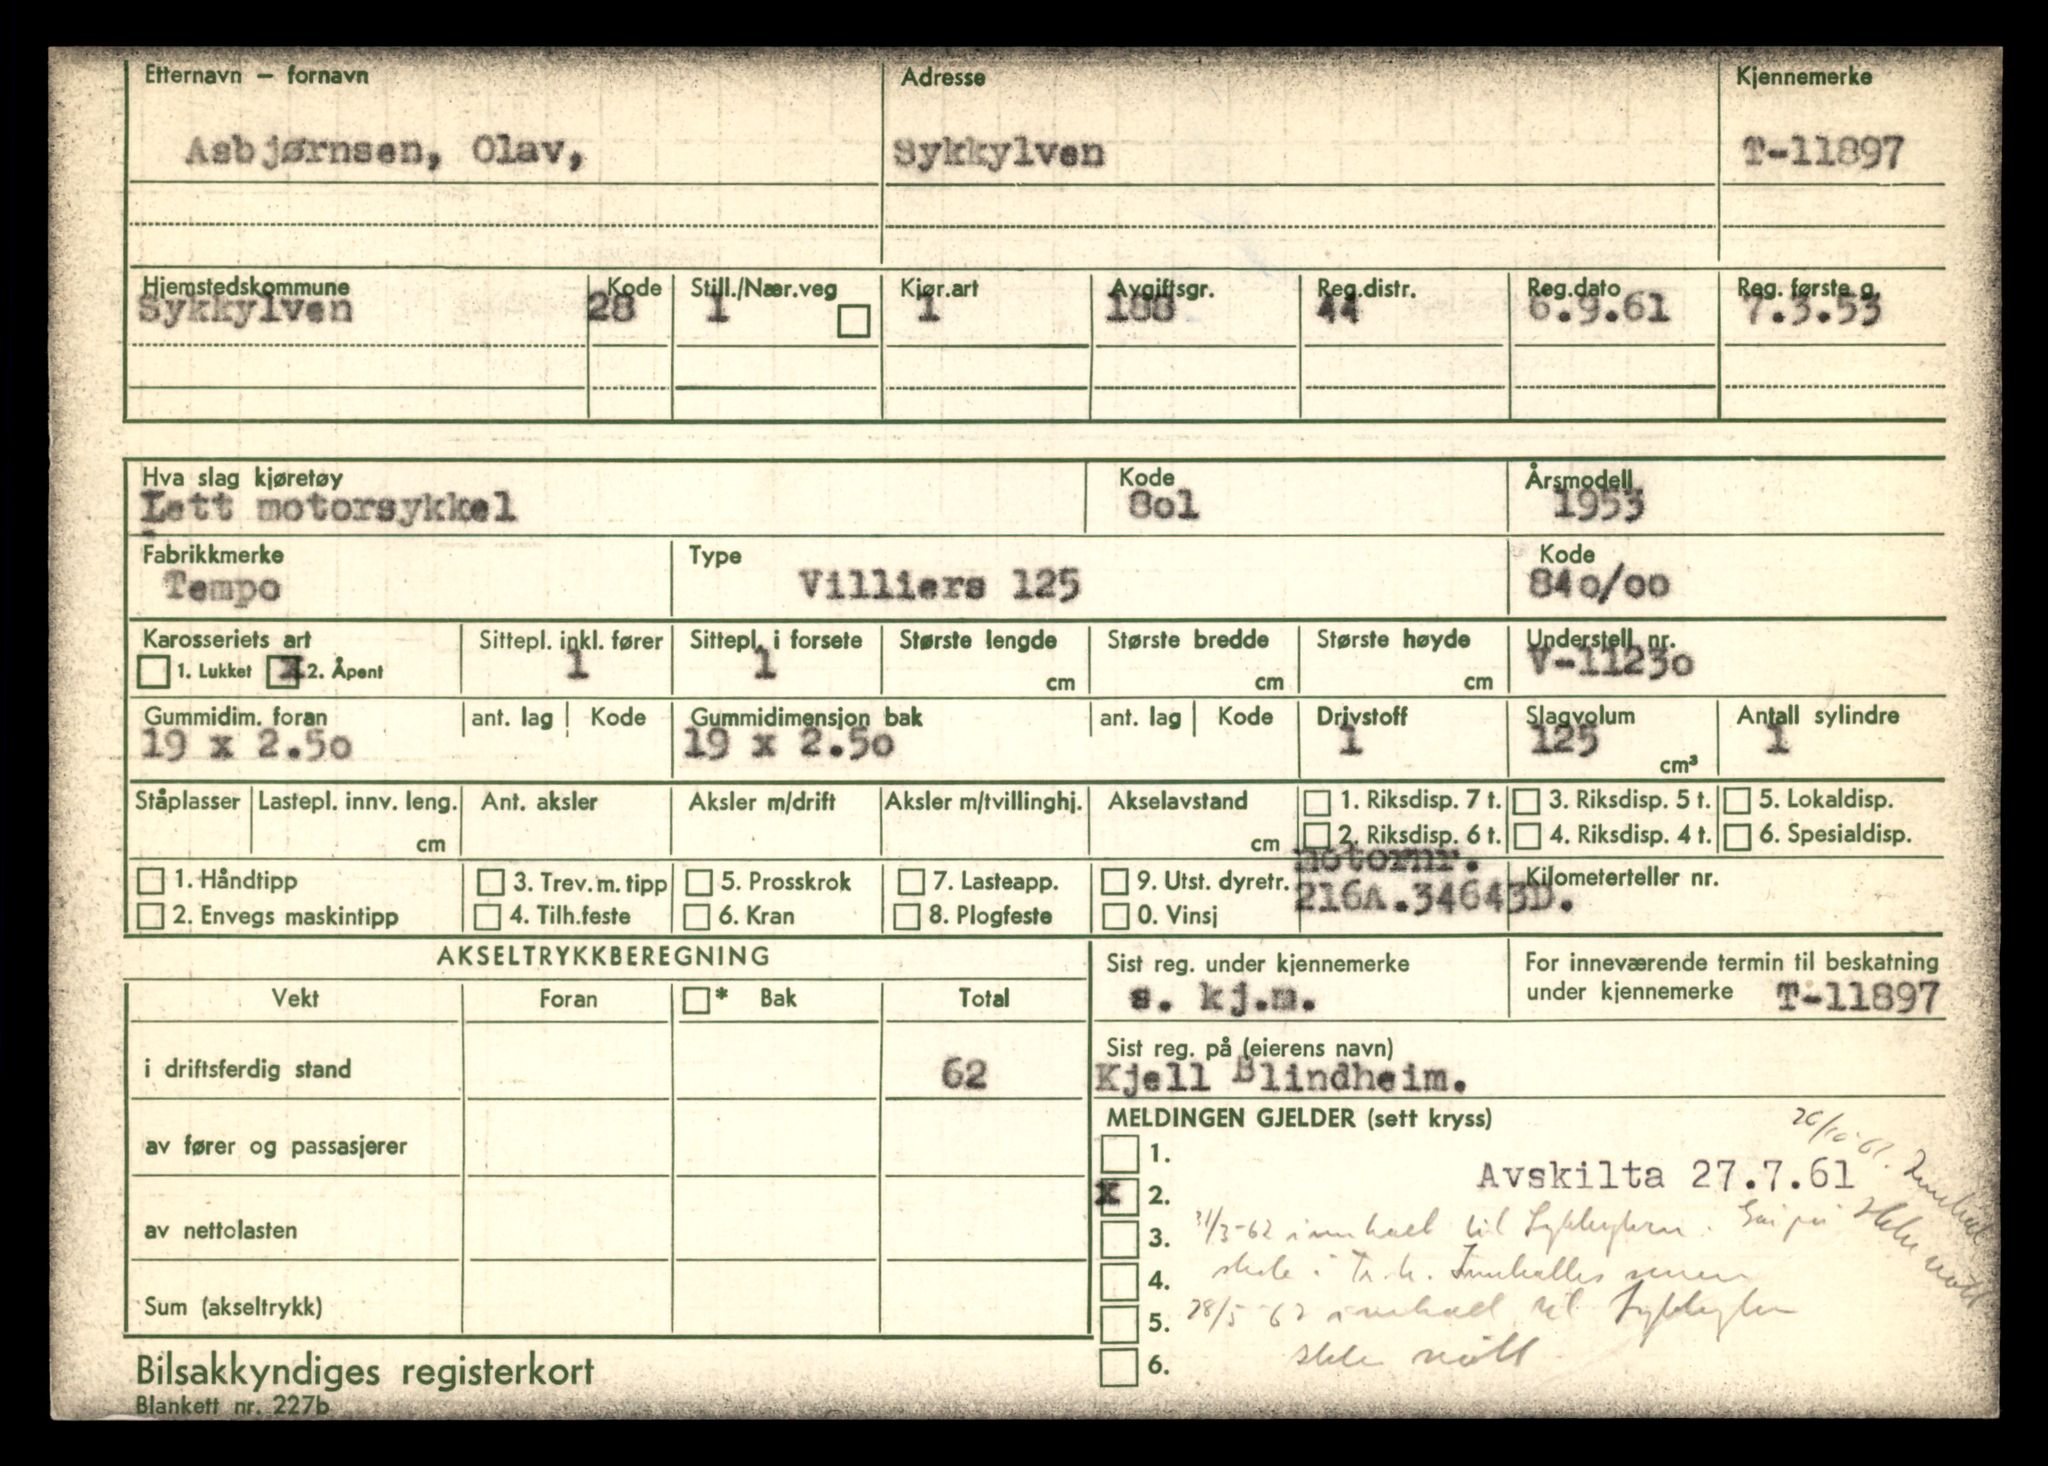 Etternavn – fornavn Adresse Kjennemerke
Asbjørnsen, Olav, Sykkylven T-11897
Hjemstedskommune Kode Still./Nær.veg Kjør.art Avgiftsgr. Reg.distr. Reg.dato Reg. første g.
Sykkylven 28 1 1 188 44 6.9.61 7.3.53
Hva slag kjøretøy Kode Årsmodell
Lett motorsykkel 8o1 1953
Fabrikkmerke Type Kode
Tempo Villiers 125 84o/oo
Karosseriets art Sittepl. inkl. fører Sittepl. i forsete Største lengde Største bredde Største høyde Understell nr.
1. Lukket x 2. Åpent 1 1 cm cm cm V-1123o
Gummidim. foran ant. lag Kode Gummidimensjon bak ant. lag Kode Drivstoff Slagvolum Antall sylindre
19 x 2.5o 19 x 2.5o 1 125 cm³ 1
Ståplasser Lastepl. innv. leng. Ant. aksler Aksler m/drift Aksler m/tvillinghj. Akselavstand 1. Riksdisp. 7 t. 3. Riksdisp. 5 t. 5. Lokaldisp.
cm cm 2. Riksdisp. 6 t. 4. Riksdisp. 4 t. 6. Spesialdisp.
motornr.
1. Håndtipp 3. Trev. m. tipp 5. Prosskrok 7. Lasteapp. 9. Utst. dyretr. 216A.34643D. Kilometerteller nr.
2. Envegs maskintipp 4. Tilh.feste 6. Kran 8. Plogfeste 0. Vinsj
AKSELTRYKKBEREGNING
Vekt Foran * Bak Total
i driftsferdig stand 62
av fører og passasjerer
av nettolasten
Sum (akseltrykk)
Sist reg. under kjennemerke
s. kj.m.
For inneværende termin til beskatning
under kjennemerke T-11897
Sist reg. på (eierens navn)
Kjell Blindheim.
MELDINGEN GJELDER (sett kryss)
1.
Avskilta 27.7.61
x 2.
3.
4.
5.
6.
31/3-62 innkalt til Sykkylven.
28/5-62 innkalt til Sykkylven
møtt
Bilsakkyndiges registerkort
Blankett nr. 227b